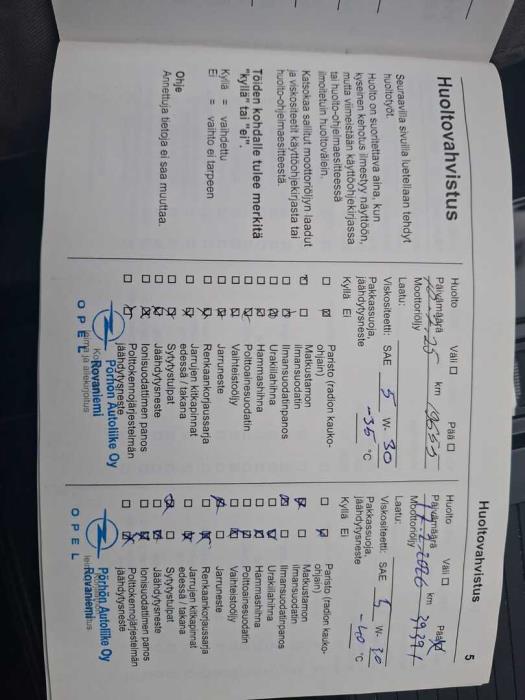 Huoltovahvistus
Seuraavilla sivuilla luetellaan tehdyt
huoltotyöt.
Huolto on suoritettava aina, kun
kyseinen kehotus ilmestyy näyttöön,
mutta viimeistään käyttöohjekirjassa
tai huolto-ohjelmaesitteessä
ilmoitetuin huoltovälein.
Katsokaa sallitut moottoriöljyn laadut
ja viskositeetit käyttöohjekirjasta tai
huolto-ohjelmaesitteestä.
Töiden kohdalle tulee merkitä
"kyllä" tai "ei".
Kyllä = vaihdettu
Ei = vaihto ei tarpeen
Ohje
Annettuja tietoja ei saa muuttaa.
Huolto Väli Pää
Päivämäärä km
Moottoriöljy
Laatu:
Viskositeetti: SAE 5 W- 30
Pakkassuoja,
jäähdytysneste -35 °C
Kyllä Ei
Paristo (radion kauko-
ohjain)
Matkustamon
ilmansuodatin
Ilmansuodatinpanos
Urakiilahihna
Hammashihna
Polttoainesuodatin
Vaihteistoöljy
Jarruneste
Renkaankorjaussarja
Jarrujen kitkapinnat
edessä / takana
Sytytystulpat
Jäähdytysneste
Ionisuodattimen panos
Polttokennojärjestelmän
jäähdytysneste
Pörhön Autoliike Oy
Rovaniemi
OPEL
Huoltovahvistus
5
Huolto Väli Pää
Päivämäärä km 39391
Moottoriöljy
Laatu:
Viskositeetti: SAE 5 W- 30
Pakkassuoja,
jäähdytysneste -40 °C
Kyllä Ei
Paristo (radion kauko-
ohjain)
Matkustamon
ilmansuodatin
Ilmansuodatinpanos
Urakiilahihna
Hammashihna
Polttoainesuodatin
Vaihteistoöljy
Jarruneste
Renkaankorjaussarja
Jarrujen kitkapinnat
edessä / takana
Sytytystulpat
Jäähdytysneste
Ionisuodattimen panos
Polttokennojärjestelmän
jäähdytysneste
Pörhön Autoliike Oy
Rovaniemi
OPEL